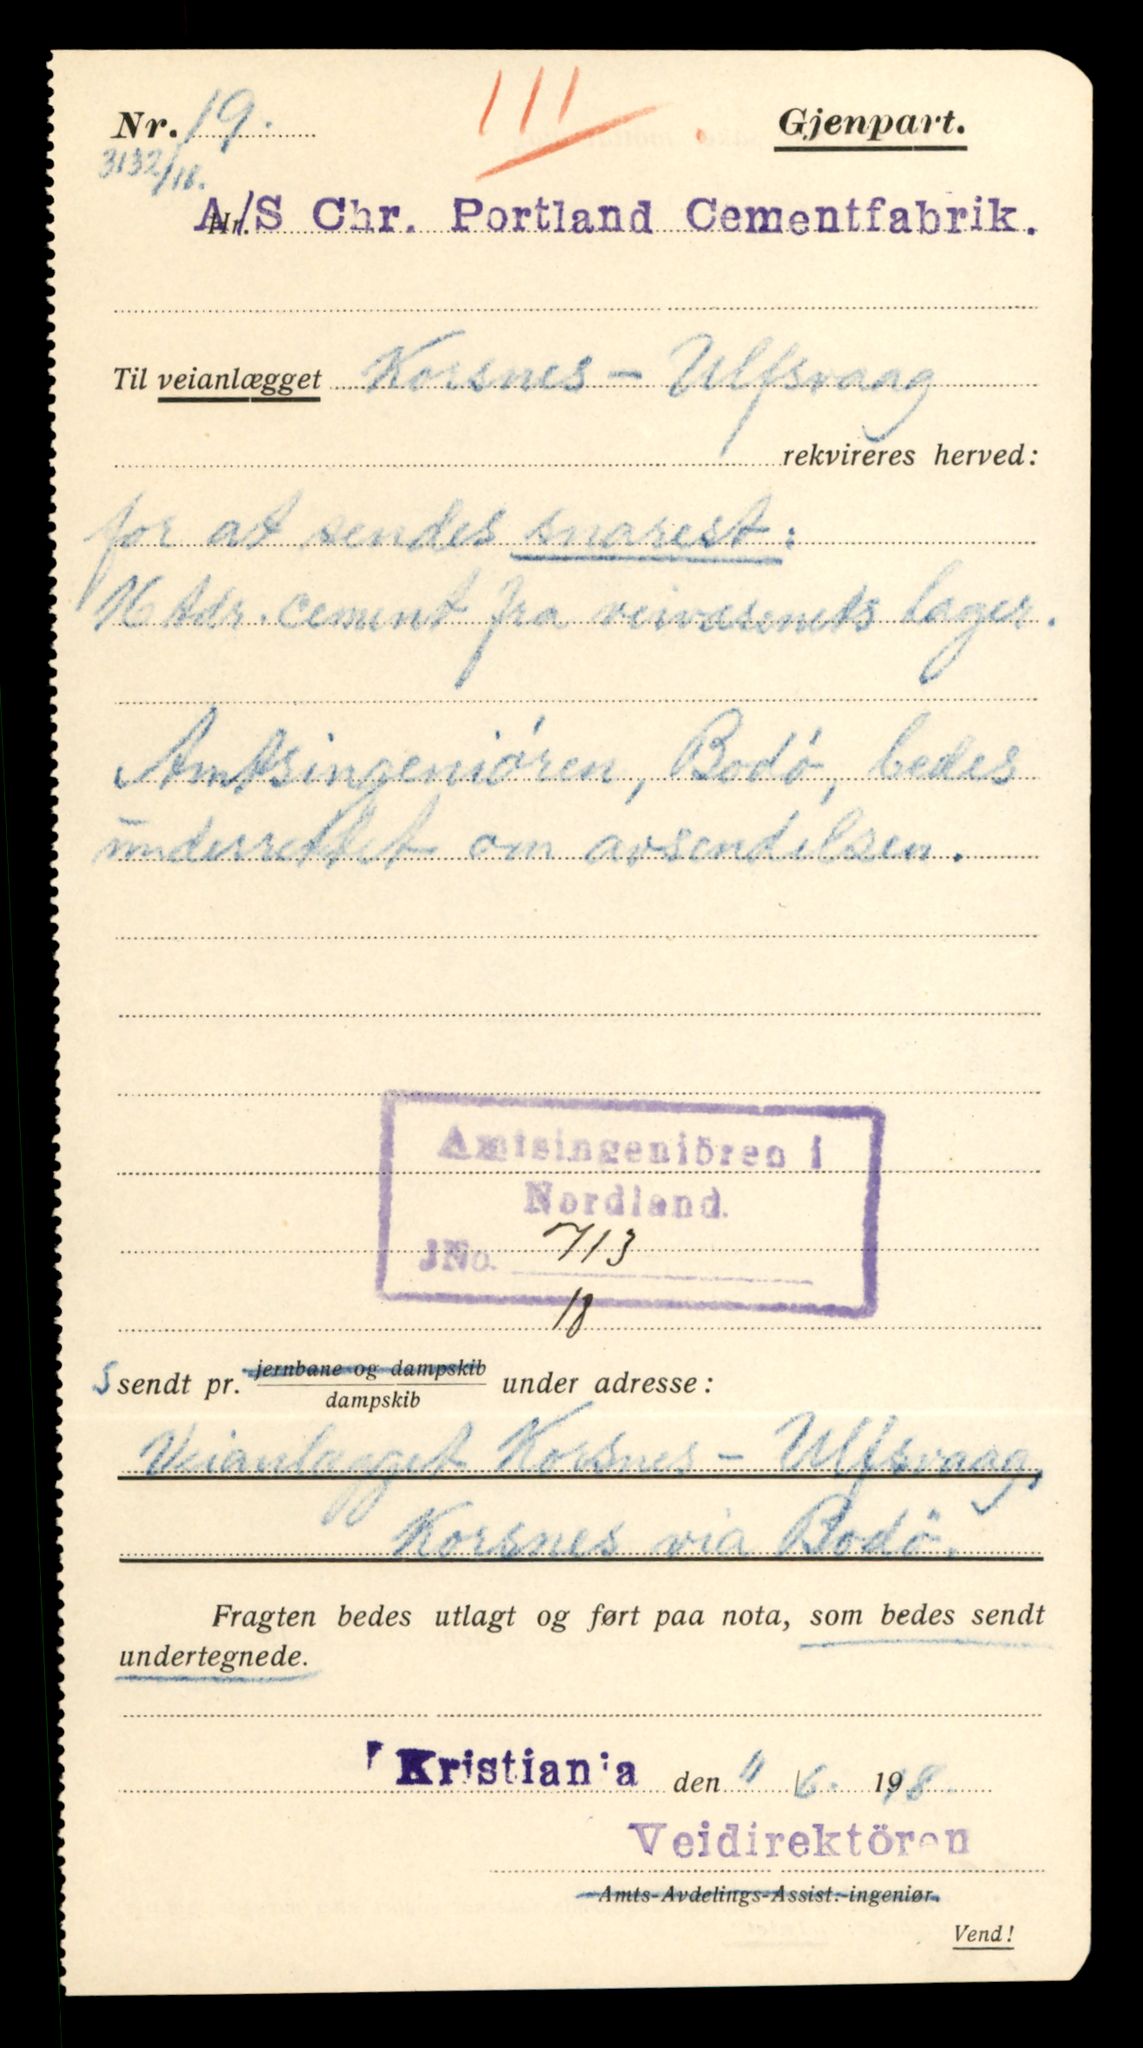 Nr. 19.
111
Gjenpart.
3132/18.
Nr. A/S Chr. Portland Cementfabrik.
Til veianlægget Korsnes – Ulfsvaag
rekvireres herved:
for at sendes snarest:
tdr. cement fra veivæsenets lager.
Amtsingeniören, Bodö, bedes
underrettet om avsendelsen.
Amtsingeniören i
Nordland.
JNo. 713
18
sendt pr. jernbane og dampskib
dampskib
under adresse:
Veianlægget Korsnes – Ulfsvaag,
Korsnes via Bodö.
Fragten bedes utlagt og ført paa nota, som bedes sendt
undertegnede.
Kristiania den 11/6. 1918.
Veidirektören
Amts-Avdelings-Assist.-ingeniør.
Vend!